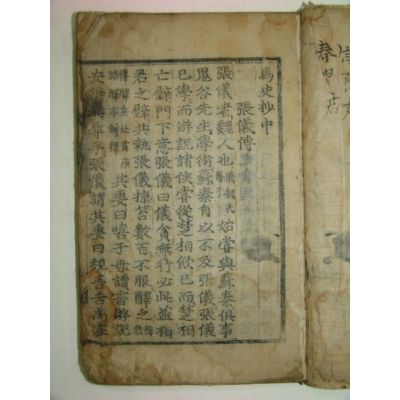 春
馬史抄中
張儀傳
張儀者魏人也始嘗與蘇秦俱事
鬼谷先生學術蘇秦自以不及張儀張儀
已學而游說諸侯嘗從楚相飲已而楚相
亡璧門下意張儀曰儀貧無行必此盜相
君之璧共執張儀掠笞數百不服醳之
其妻曰嘻子毋讀書游說
安得此辱乎張儀謂其妻曰視吾舌尚在